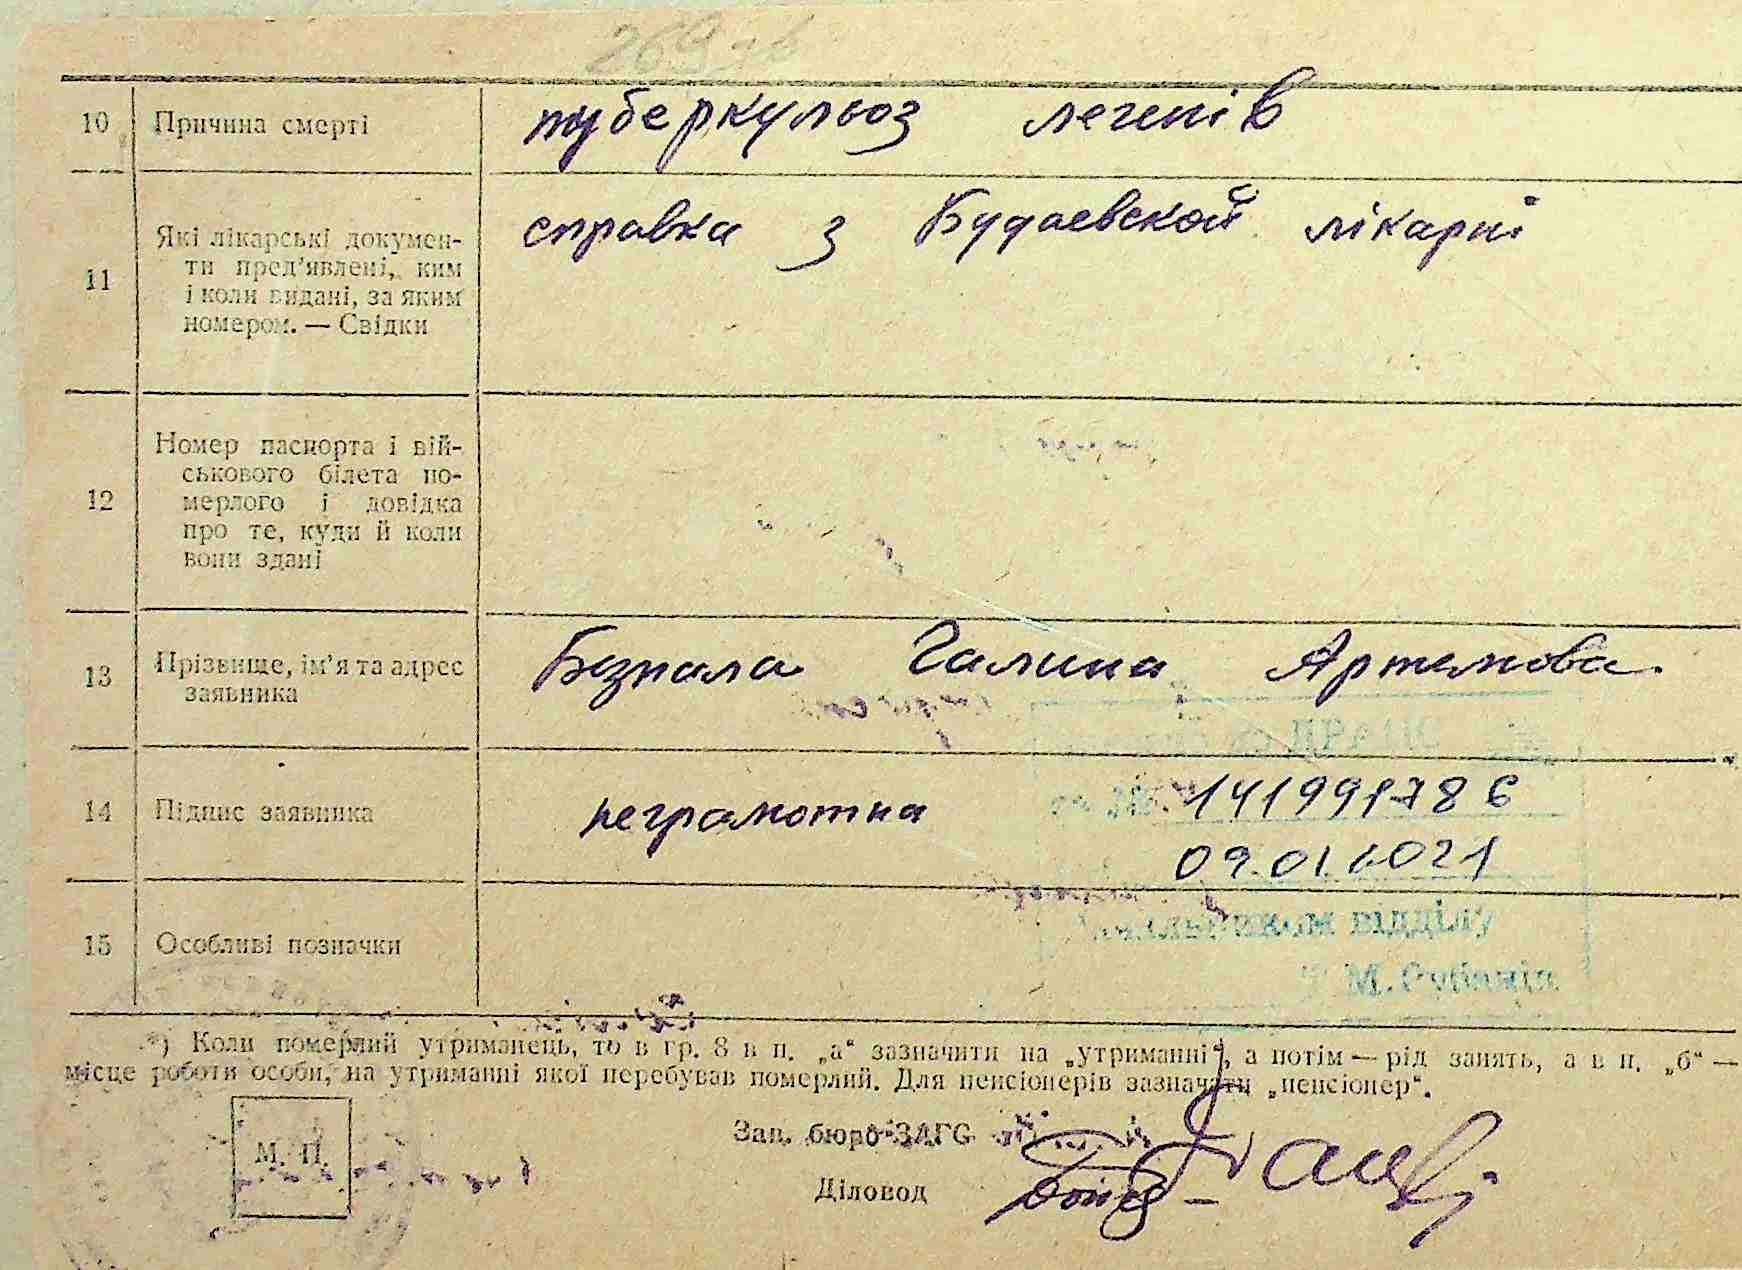 10 Причина смерті туберкульоз легенів
11 Які лікарські докумен-
ти пред'явлені, ким
і коли видані, за яким
номером. — Свідки
справка з Будаевской лікарні
12 Номер паспорта і вій-
ськового білета по-
мерлого і довідка
про те, куди й коли
вони здані
13 Прізвище, ім'я та адрес
заявника
Галина Артемовa
14 Підпис заявника неграмотна
141991786
15 Особливі позначки
відділу
*) Коли померлий утриманець, то в гр. 8 в п. „а“ зазначити на „утриманні“, а потім — рід занять, а в п. „б“ —
місце роботи особи, на утриманні якої перебував померлий. Для пенсіонерів зазначати „пенсіонер“.
М. П.
Зав. бюро ЗАГС
Діловод